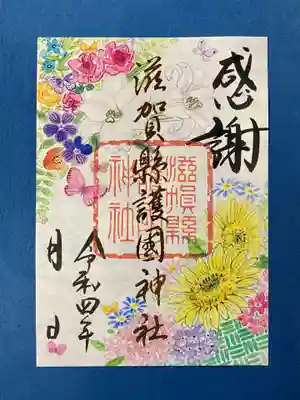 感謝
滋賀縣護國神社
滋賀縣
神社
令和四年
月 日